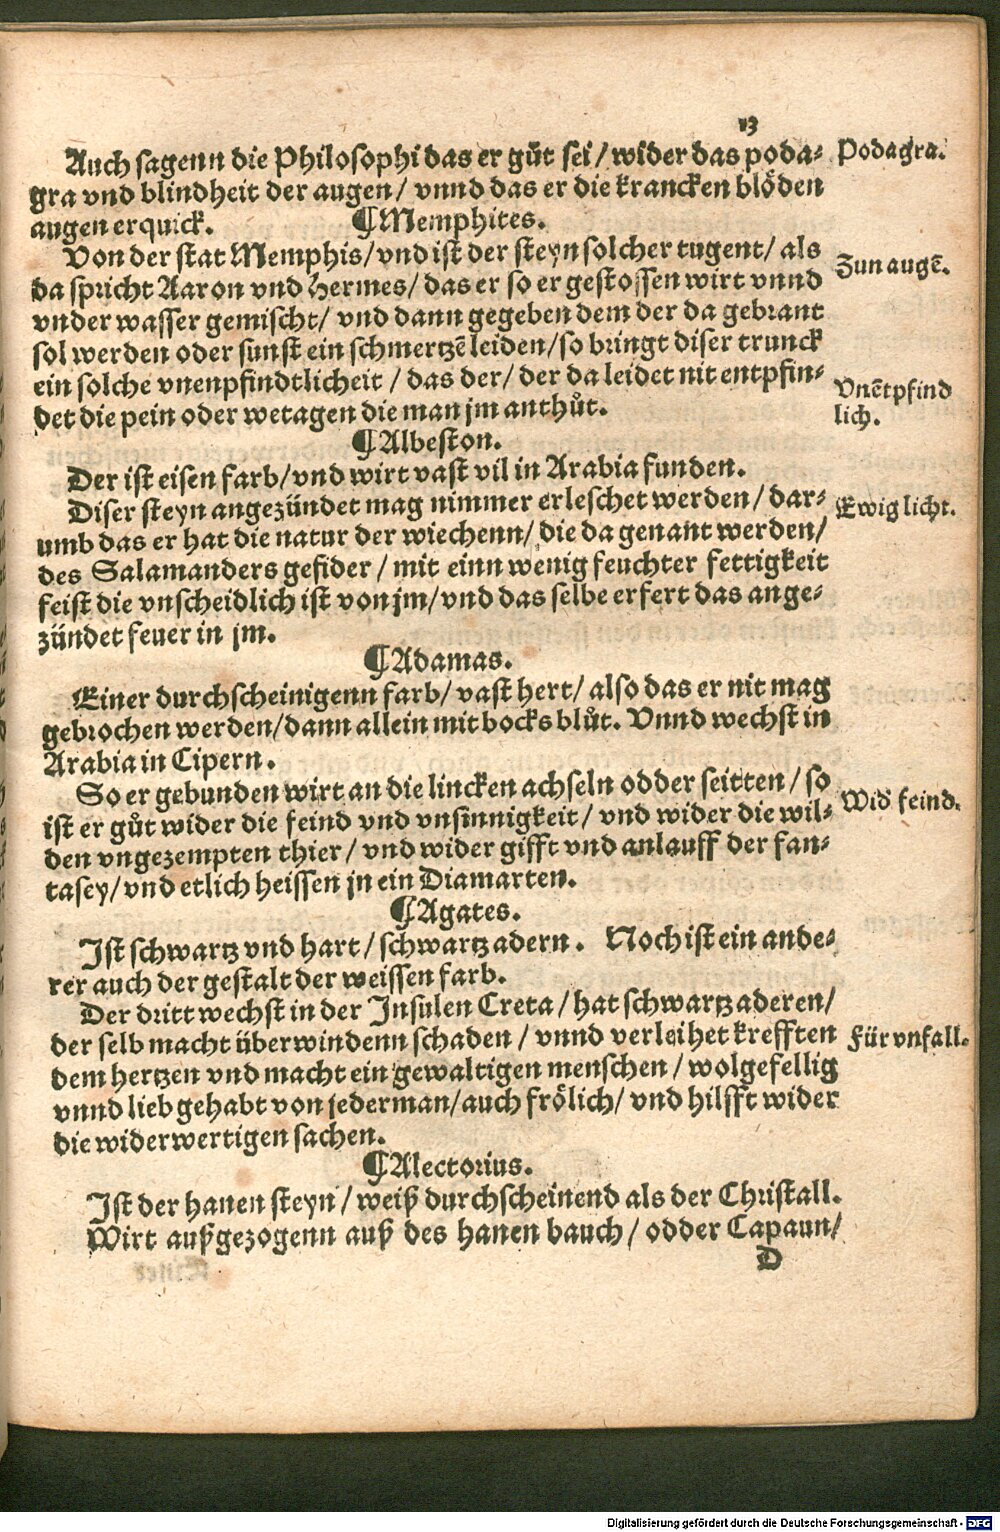 13
Auch sagenn die Philosophi das er gůt sei / wider das poda⸗
gra vnd blindheit der augen / vnnd das er die krancken blöden
augen erquick. ¶Memphites.
Von der stat Memphis / vnd ist der steyn solcher tugent / als
da spricht Aaron vnd Hermes / das er so er gestossen wirt vnnd
vnder wasser gemischt / vnd dann gegeben dem der da gebrant
sol werden oder sunst ein schmertzē leiden / so bringt diser trunck
ein solche vnenpfindtlicheit / das der / der da leidet nit entpfin⸗
det die pein oder wetagen die man jm anthůt.
¶Albeston.
Der ist eisen farb / vnd wirt vast vil in Arabia funden.
Diser steyn angezündet mag nimmer erleschet werden / dar⸗
umb das er hat die natur der wiechenn / die da genant werden /
des Salamanders gefider / mit einn wenig feuchter fettigkeit
feist die vnscheidlich ist von jm / vnd das selbe erfert das ange⸗
zündet feuer in jm.
¶Adamas.
Einer durchscheinigenn farb / vast hert / also das er nit mag
gebrochen werden / dann allein mit bocks blůt. Vnnd wechst in
Arabia in Cipern.
So er gebunden wirt an die lincken achseln odder seitten / so
ist er gůt wider die feind vnd vnsinnigkeit / vnd wider die wil⸗
den vngezempten thier / vnd wider gifft vnd anlauff der fan⸗
tasey / vnd etlich heissen jn ein Diamarten.
¶Agates.
Ist schwartz vnd hart / schwartz adern. Noch ist ein ande⸗
rer auch der gestalt der weissen farb.
Der dritt wechst in der Insulen Creta / hat schwartz aderen /
der selb macht überwindenn schaden / vnnd verleihet krefften
dem hertzen vnd macht ein gewaltigen menschen / wolgefellig
vnnd lieb gehabt von jederman / auch frölich / vnd hilfft wider
die widerwertigen sachen.
¶Alectorius.
Ist der hanen steyn / weiß durchscheinend als der Christall.
Wirt außgezogenn auß des hanen bauch / odder Capaun /
D
Podagra.
Zun augē.
Vnētpfind
lich.
Ewig licht.
Wid̄ feind.
Für vnfall.
Digitalisierung gefördert durch die Deutsche Forschungsgemeinschaft - DFG